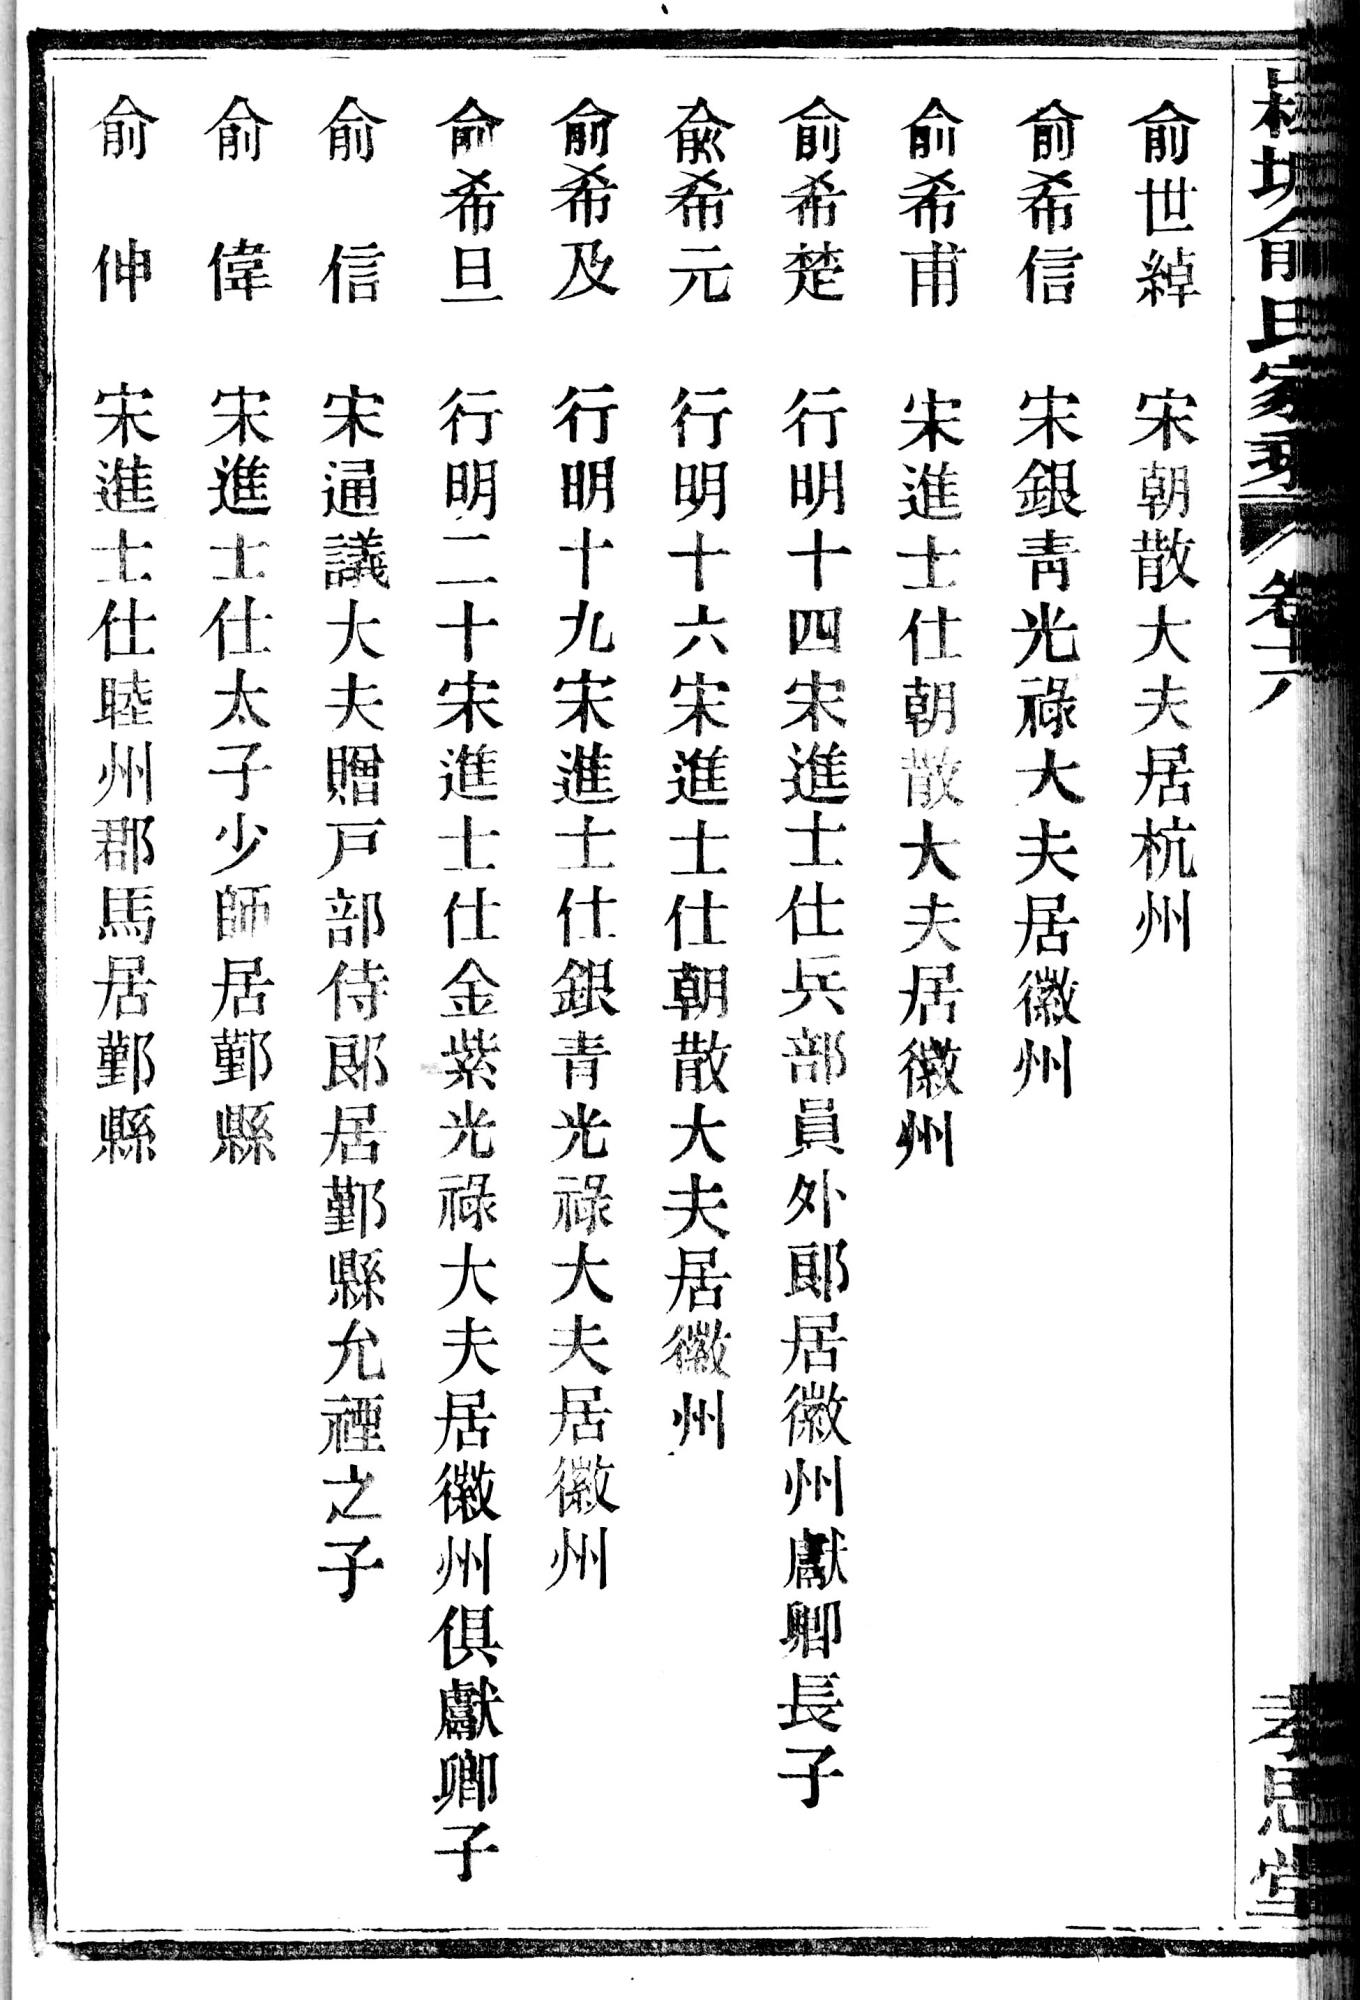 俞氏家乘 卷十六
孝思堂
俞世綽 宋朝散大夫居杭州
俞希信 宋銀靑光祿大夫居徽州
俞希甫 宋進士仕朝散大夫居徽州
俞希楚 行明十四宋進士仕兵部員外郞居徽州獻卿長子
俞希元 行明十六宋進士仕朝散大夫居徽州
俞希及 行明十九宋進士仕銀青光祿大夫居徽州
俞希旦 行明二十宋進士仕金紫光祿大夫居徽州俱獻卿子
俞 信 宋通議大夫贈戸部侍郞居鄞縣允禋之子
俞 偉 宋進士仕太子少師居鄞縣
俞 伸 宋進士仕睦州郡馬居鄞縣